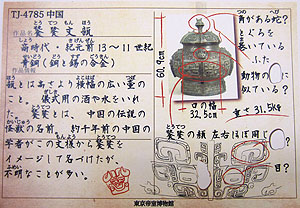 TJ-4785 中国
作品名 饕餮文瓿
商時代・紀元前13〜11世紀
青銅(銅と錫の合金)
瓿とは高さより横幅の広い壺の
こと。儀式用の酒や水をいれ
た。饕餮とは、中国の伝説の
怪獣の名前。約十年前の中国の
学者がこの文様から饕餮を
イメージして名づけたが、
不明なことが多い。
60.9cm
口の幅
32.5cm
重さ31.5kg
角がある蛇?
とぐろを
巻いている
動物の
に
似ている?
饕餮の顔 左右ほぼ同じ
目?
東京帝室博物館